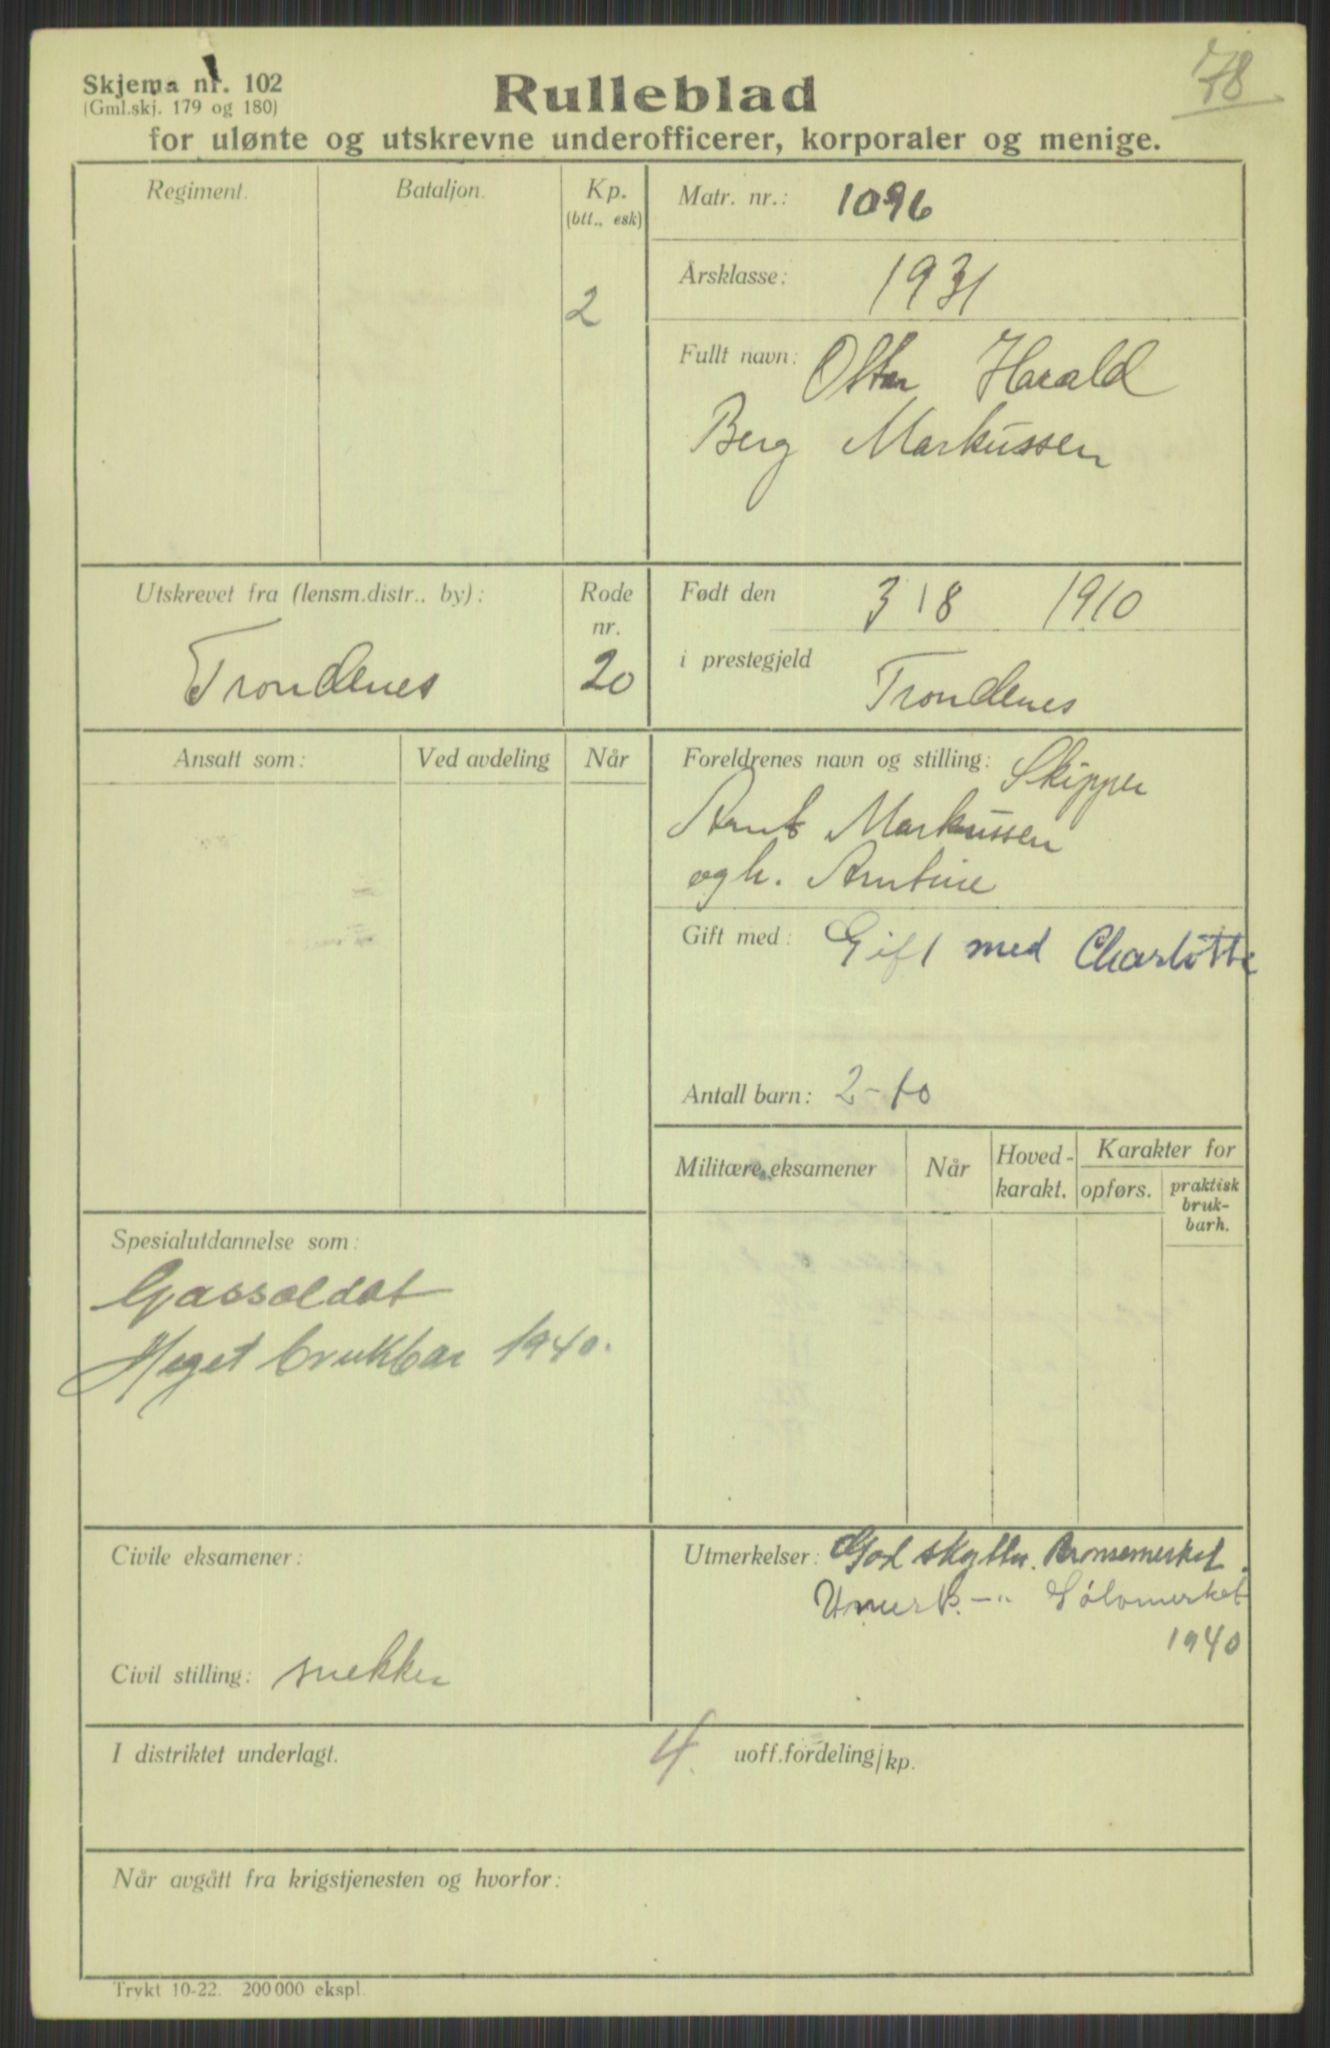 Skjema nr. 102
(Gml.skj. 179 og 180)
78
Rulleblad
for ulønte og utskrevne underofficerer, korporaler og menige.
Regiment.
Bataljon.
Kp.
(btt., esk)
2
Matr. nr.: 1096
Årsklasse: 1931
Fullt navn: Harald
Berg Markussen
Utskrevet fra (lensm.distr., by):
Trondenes
Rode
nr.
20
Født den 3/8 1910
i prestegjeld Trondenes
Ansatt som:
Ved avdeling
Når
Foreldrenes navn og stilling: Skipper
Arnt Markussen
og h. Arntine
Gift med: Gift med Charlotte
Antall barn: 2-40
Militære eksamener
Når
Hoved-
karakt.
Karakter for
opførs.
praktisk
bruk-
barh.
Spesialutdannelse som:
Gassoldat
Meget brukbar 1940.
Civile eksamener:
Civil stilling: snekker
Utmerkelser: God skytter. Bronsemerket.
Utmerk. -"- Sølvmerket
1940
I distriktet underlagt.
4. uoff.fordeling/kp.
Når avgått fra krigstjenesten og hvorfor:
Trykt 10-22. 200 000 ekspl.